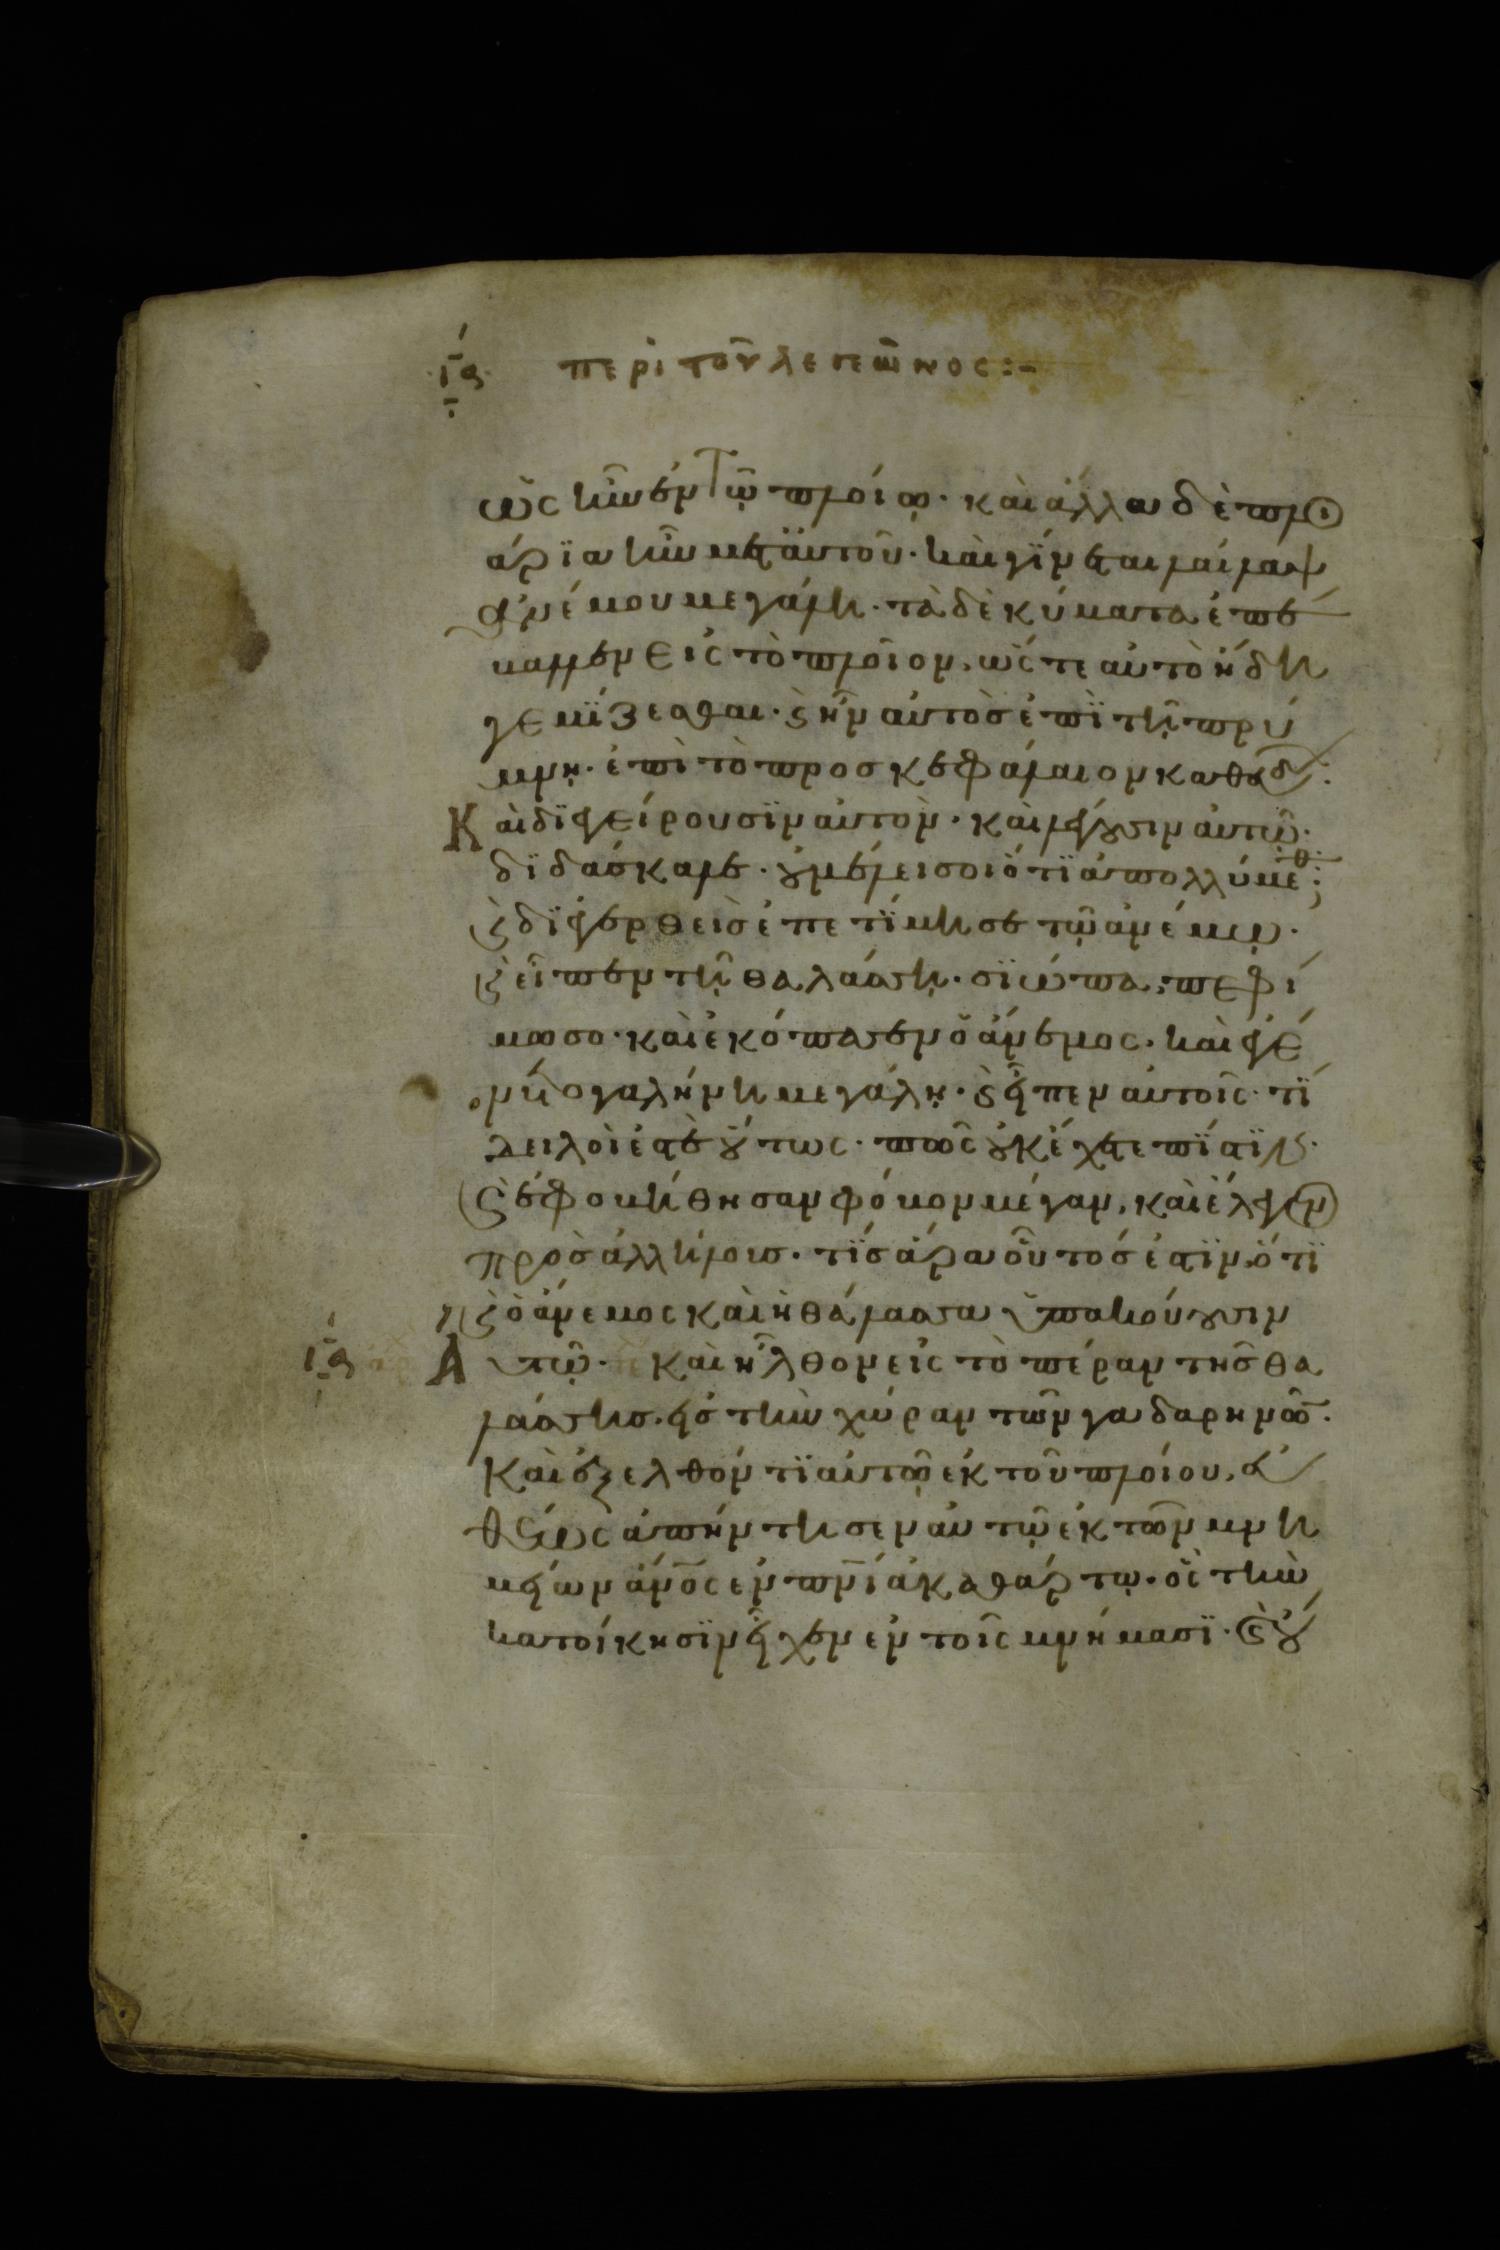 ια περὶ τοῦ λεγεῶνος:-
ὡς ἦν ἐν τῶ πλοίω· καὶ ἄλλα δὲ πλοι
άρϊα ἦν μετ' αὐτοῦ· καὶ γίνεται λαίλαψ
ἀνέμου μεγάλη· τὰ δὲ κύματα ἐπέ
βαλλεν εἰς τὸ πλοῖον, ὥστε αὐτὸ ἤδη
γεμϊζεσθαι· ϗ ἦν αὐτὸσ ἐπῒ τῆ πρύ
μνη· ἐπὶ τὸ προσκεφάλαιον καθεύδ·
Καὶ δϊεγείρουσϊν αὐτὸν· καὶ λέγουσιν αὐτῶ·
δϊδάσκαλε· οὐ μέλει σοι ὅτϊ ἀπολλύμεθ;
ϗ δϊεγερθεὶσ ἐπετίμησε τῶ ἀνέμω·
ϗ εἶπεν τῆ θαλάσση· σϊώπα, πεφί
μωσο· καὶ ἐκόπασεν ὁ ἄνεμος· καὶ ἐγέ
νετο γαλήνη μεγάλη· ϗ εἶπεν αὐτοῖς· τΐ
δειλοὶ ἐστὲ οὕτως· πῶς οὐκ ἔχετε πΐστϊν·
ϗ ἐφοβήθησαν φόβον μέγαν, καὶ ἔλεγον
πρὸσ ἀλλήλουσ· τΐσ ἄρα οὗτόσ ἐστϊν, ὅτϊ
ϗ ὁ ἄνεμος καὶ ἡ θάλασσα ὑπακούουσιν
Αὐτῶ· καὶ ἦλθον εἰς τὸ πέραν τῆσ θα
ια
λάσσησ· εἰσ τὴν χώραν τῶν γαδαρηνῶ·
Καὶ ἐξελθόντϊ αὐτῶ ἐκ τοῦ πλοίου, εὐ
θέως ἀπήντησεν αὐτῶ ἐκ τῶν μνη
μείων ἄνος ἐν πνι ἀκαθάρτω· ὃς τὴν
κατοίκησϊν εἶχεν ἐν τοῖς μνήμασϊ· ϗ οὔ